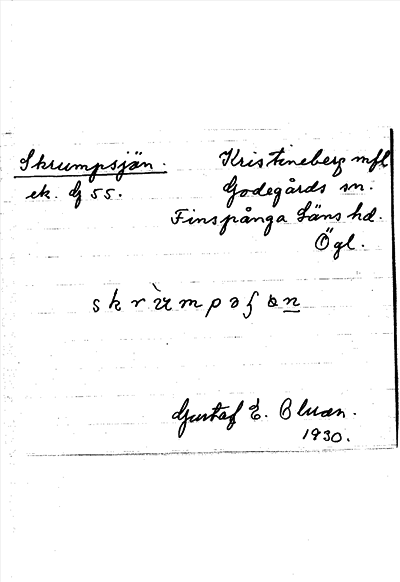 Skrumpsjön.
ek. G 55.
Kristineberg mfl
Godegårds sn.
Finspånga Läns hd.
Ögl.
Gustaf E. Bluan.
1930.